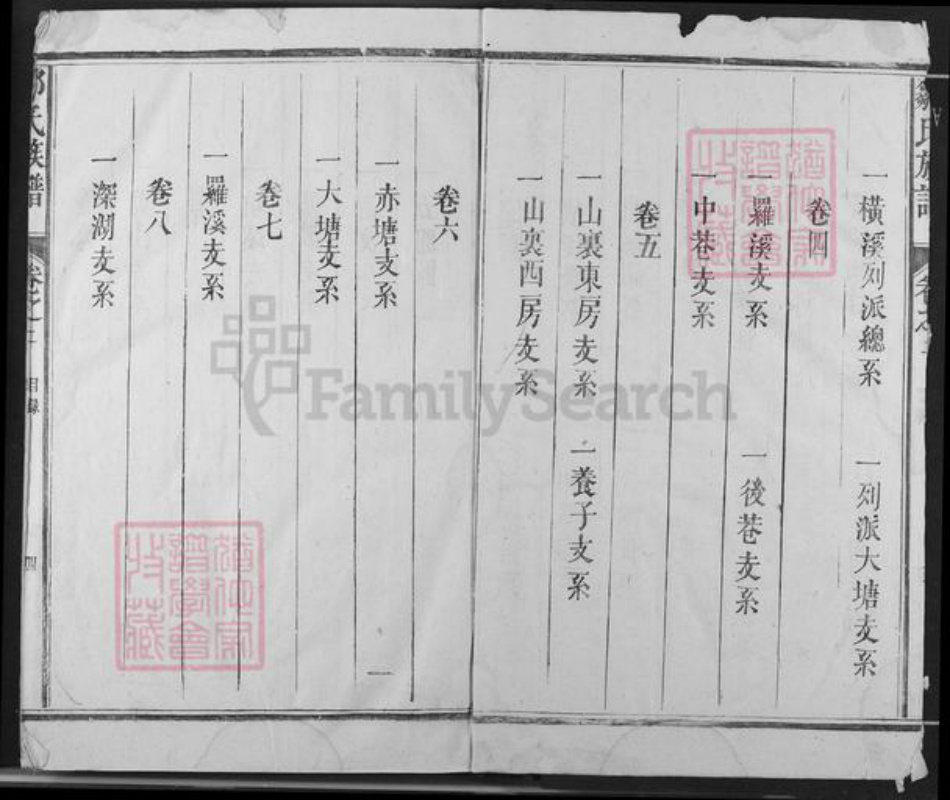 一橫溪列派總系　一列派大塘支系
卷四
一羅溪支系　一後巷支系
一中巷支系
卷五
一山裏東房支系　一養子支系
一山裏西房支系
卷六
一赤塘支系
一大塘支系
卷七
一羅溪支系
卷八
一深湖支系
氏族譜
目錄
四
FamilySearch